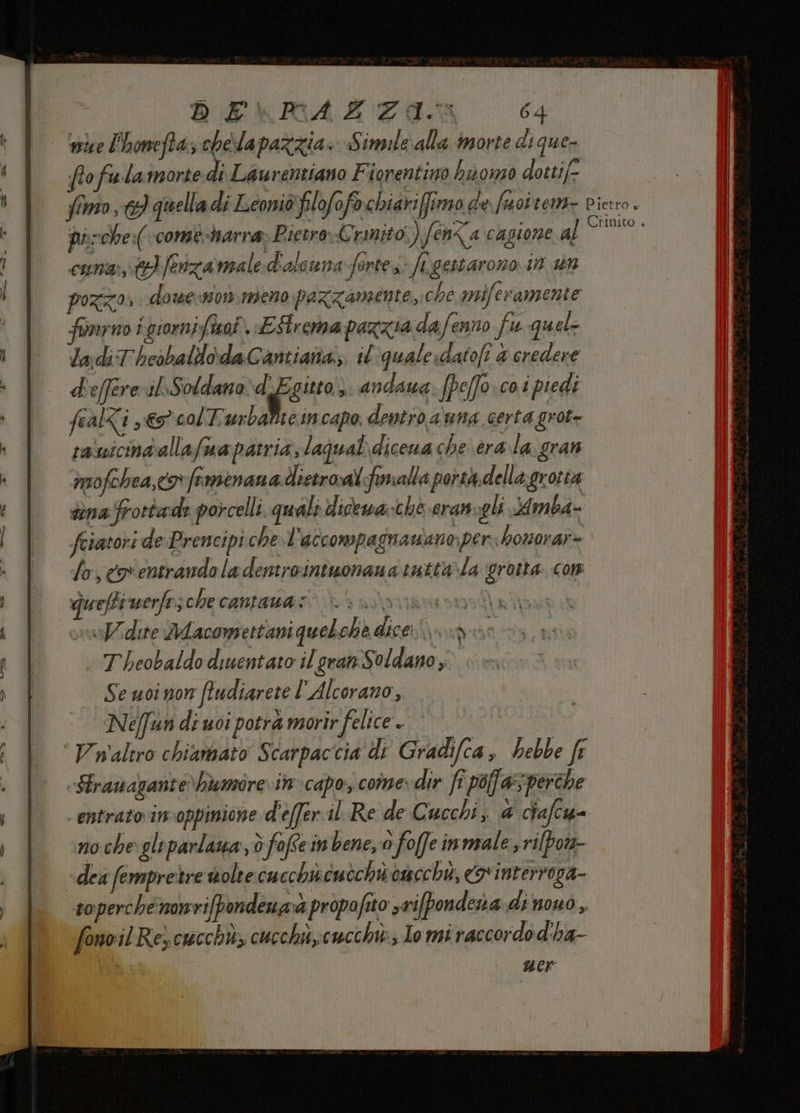 DE' PAZZI. 64
uue l'honestà, che la pazzia. Simile alla morte di que-
sto fu la morte di Laurentiano Fiorentino huomo dottis-
simo, & quella di Leoniõ filosofo chiarissimo de suoi tem-
Pietro
Crinito.
pi: che ( come narra Pietro Crinito ) senza cagione al
cuna, & senza male d'alcuna sorte, si gettarono in un
pozzo, doue non meno pazzamente, che miseramente
finirno i giorni suoi. Estrema pazzia da senno fu quel-
la di Theobaldo da Cantiana, il quale datosi à credere
d'essere il Soldano d'Egitto, andaua spesso co i piedi
scalzi, & col Turbante in capo, dentro a una certa grot-
ta uicina alla sua patria, laqual diceua che era la gran
moschea, & si menaua dietro al sin alla porta della grotta
una frotta di porcelli quali diceua che eran gli Amba-
sciatori de Prencipi che l'accompagnauano per honorar-
lo, & entrando la dentro intuonaua tutta la grotta con
questi uersi, che cantaua:
Vdite Macomettani quel che dice
Theobaldo diuentato il gran Soldano,
Se uoi non studiarete l'Alcorano,
Nessun di uoi potrà morir felice.
Vn'altro chiamato Scarpaccia di Gradisca, hebbe sì
strauagante humore in capo, come dir si possa, perche
entrato in oppinione d'esser il Re de Cucchi, à ciascu-
no che gli parlaua, ò fosse in bene, ò fosse in male, rispon-
dea sempre tre uolte cucchù cucchù cucchù, & interroga-
to perche non rispondeua à propo sito, rispondeua di nouo,
sono il Re, cucchù, cucchù, cucchù, Io mi raccordo d'ha-
uer